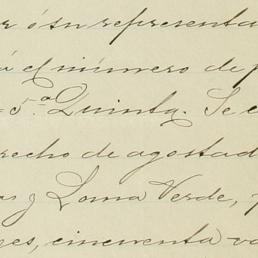 r ó su representa
á el número de p
- 5.ª Quinta. Se c
recho de agostad
as y Loma Verde, p
ges, cincuenta va